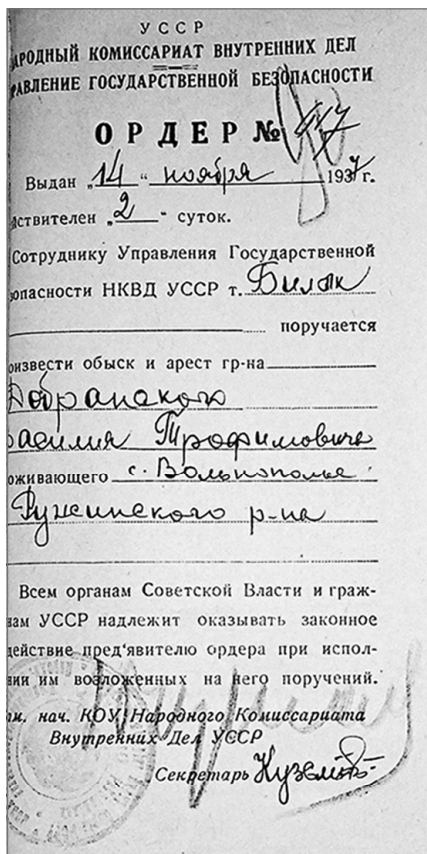 УССР
АРОДНЫЙ КОМИССАРИАТ ВНУТРЕННИХ ДЕЛ
РАВЛЕНИЕ ГОСУДАРСТВЕННОЙ БЕЗОПАСНОСТИ
ОРДЕР №
Выдан „14“ ноября 1937 г.
йствителен „2“ суток.
Сотруднику Управления Государственной
зопасности НКВД УССР т. Билык
поручается
оизвести обыск и арест гр-на
Добранского
асилия Трофимовича
оживающего с. Вольнополье
Ружинского р-на
Всем органам Советской Власти и граж-
нам УССР надлежит оказывать законное
действие пред'явителю ордера при испол-
нии им возложенных на него поручений.
ам. нач. КОУ Народного Комиссариата
Внутренних Дел УССР
Секретарь